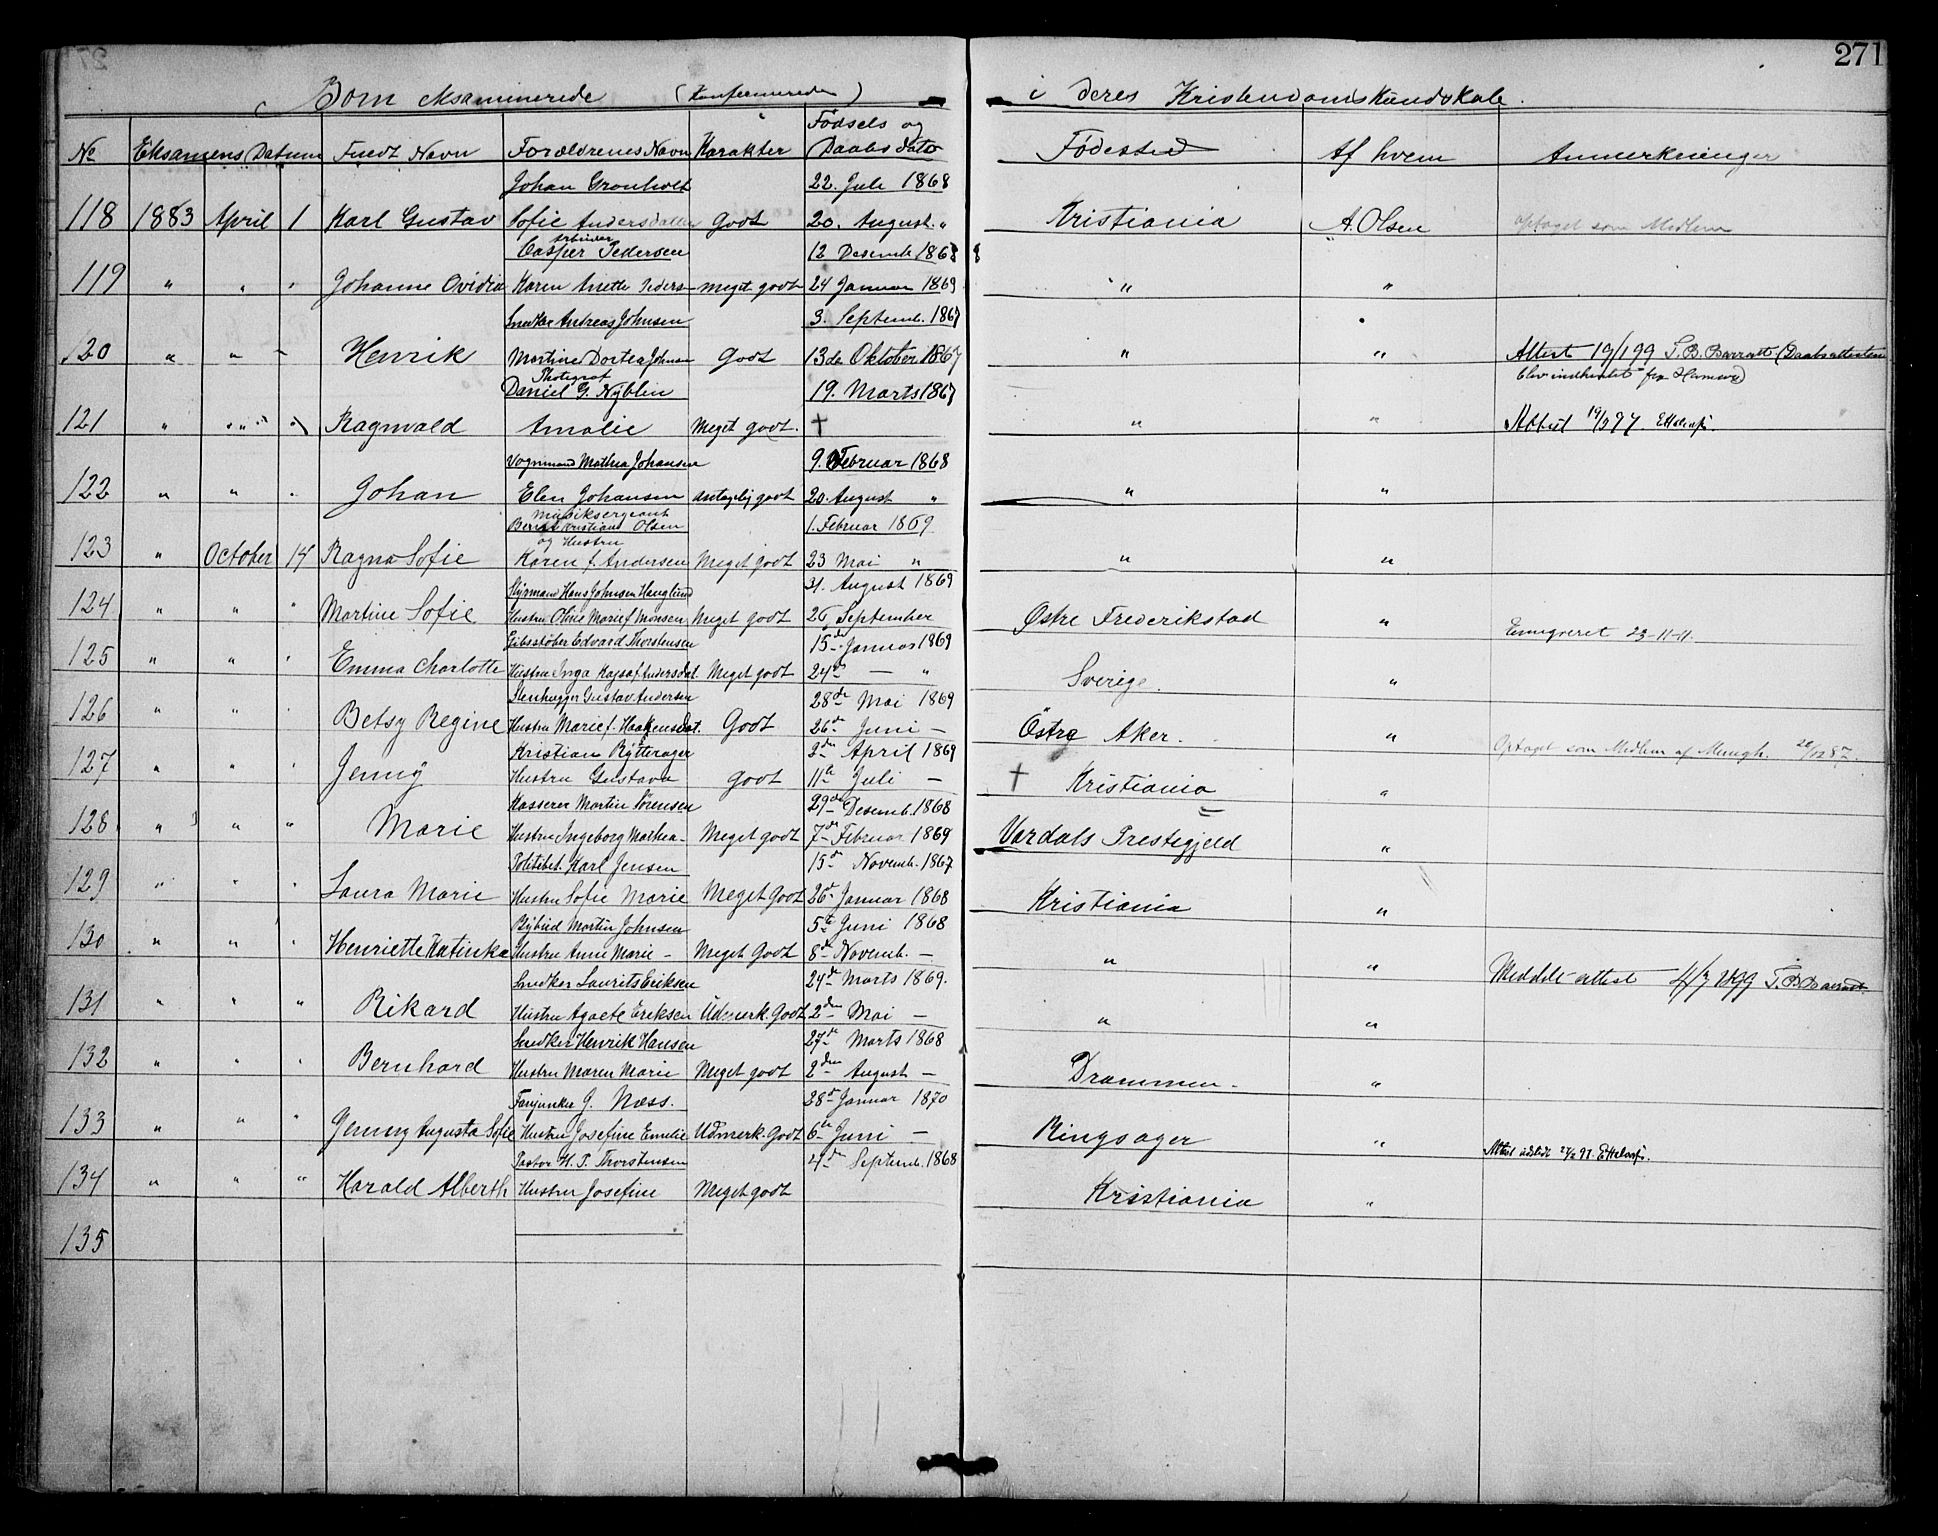 271
Børn eksaminerede (Konfirmerede) i deres Kristendomskundskab.
Fødsels og
No Eksamens Datum Fuldt Navn Forældrenes Navn Karakter Daabs dato Fødested Af hvem Anmerkninger
Johan Gronholt 22. Juli 1868
118 1883 April 1 Karl Gustav Sofie Andersdatter Godt 20. August. " Kristiania A. Olsen optaget som Medlem
Arbeider
Casper Pedersen 12 Desemb 1868 8
119 " " " Johanne Ovidia Karen Anette Peders- meget godt 24 Januar 1869 " "
Snedker Andreas Johnsen 3. Septemb. 1867
120 " " " Henrik Martine Dortea Johnsen Godt 13de Oktober 1867 " " Attest 19/1 99 T. B. Barratt (Daabsattesten
blev indhentet fra )
Photograf
Daniel G. Nyblin 19. Marts 1867
121 " " " Ragnvald Amalie Meget godt. † " " Attest 19/3 97.
Vognmand Mathea Johansen 9. Februar 1868
122 " " " Johan Elen Johansen antagelig godt 20. August " " "
Musiksergeant
Bernt Kristians Olsen 1. Februar 1869
og Hustru
123 " October 14 Ragna Sofie Karen f. Andersen Meget godt 23 Mai " " "
Styrmand Hans Johnsen Hauglund 31. August 1869
124 " " " Martine Sofie Hustru Oline Marie f Monsen Meget godt 26, September Østre Frederikstad " Emigreret 23-11-11.
Gibsstøber Edvard Thorstensen 15de Januar 1869
125 " " " Emma Charlotte Hustru Inga Kajsa f. Andersdat. Meget godt 24de — " Sverige. "
Stenhugger Gustav Andersen 28de Mai 1869
126 " " " Betsy Regine Hustru Marie f. Haakensdat. Godt 26de Juni — Östre Aker. " Optaget som Medlem af Menigh.
Kristian Rytterager 2den April 1869
127 " " " Jenny Hustru Gustava godt 11te Juli — † Kristiania "
Kasserer Martin Sörensen 29de Desemb. 1868
128 " " " Marie Hustru Ingeborg Mathea- Meget godt 7de Februar 1869 Vardals Prestegjeld "
Politibet. Karl Jensen 15de Novemb. 1867
129 " " " Laura Marie Hustru Sofie Marie Meget godt 26de Januar 1868 Kristiania "
Bybud Martin Johnsen 5te Juni 1868
130 " " " Henriette Katinka Hustru Anne Marie - Meget Godt 8de Novemb. — " " Meddelt attest 4/7 1899 T. B. Barratt
Snedker Laurits Eriksen 24de Marts 1869.
131 " " " Rikard Hustru Agaete Eriksen Udmerk. Godt 2den Mai — " "
Snedker Henrik Hansen 27de Marts 1868
132 " " " Bernhard Hustru Maren Marie Meget godt 2den August — Drammen. "
Fanjunker G. Næss. 28de Januar 1870
133 " " " Jenny Augusta Sofie Hustru Josefine Emilie Udmerk. Godt 6te Juni — Ringsager " Attest udstedt 91.
Pastor H. P. Thorstensen 4de Septemb. 1868
134 " " " Harald Alberth Hustru Josefine Meget godt Kristiania "
135